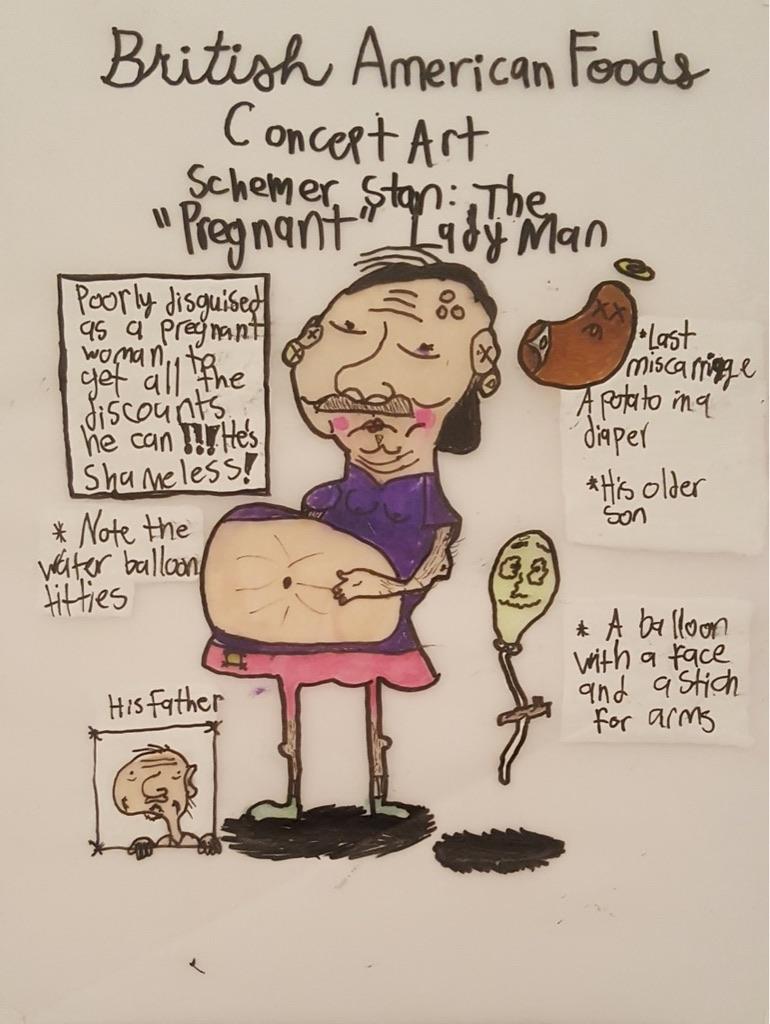 British American Foods
Concept Art
Schemer Stan: The
"Pregnant" Lady Man
Poorly disguised
as a pregnant
woman, to
get all the
discounts
he can!!! He's
Shameless!
* Note the
water balloon
titties
*Last
miscarriage
A potato in a
diaper
*His older
son
* A balloon
with a face
and a stick
for arms
His Father